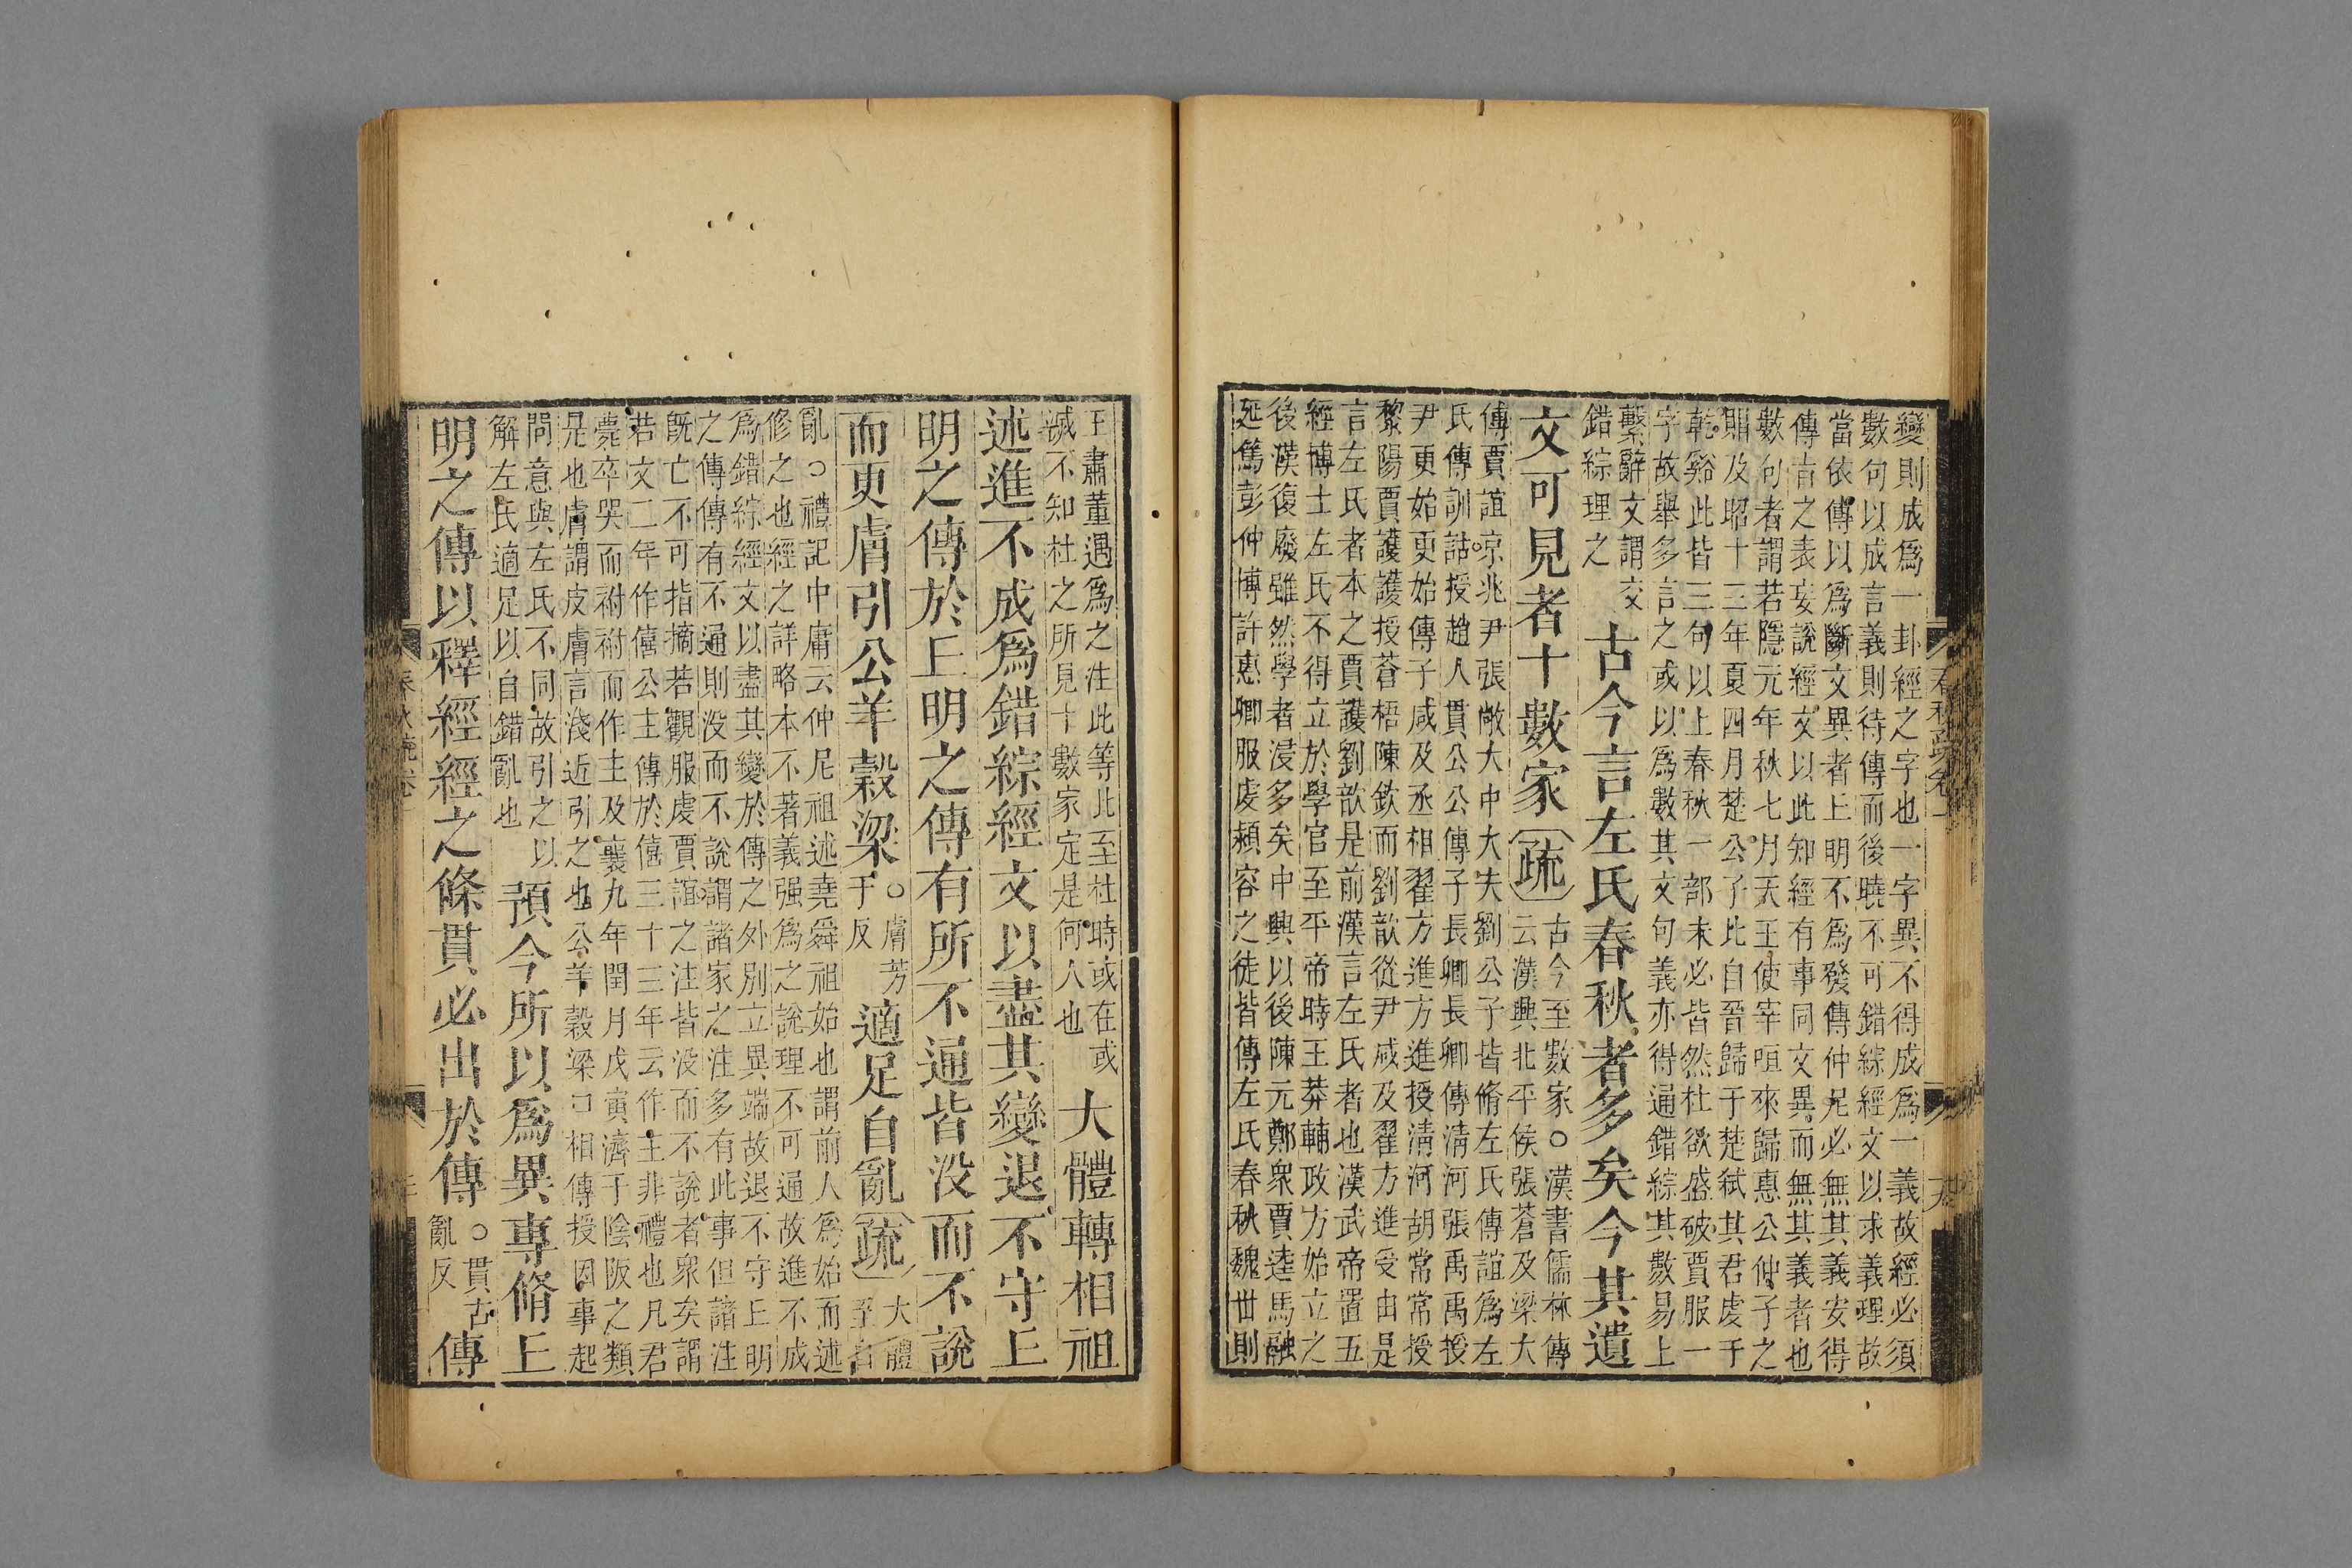 變則成爲一卦經之字也一字異不得成爲一義故經必須
數句以成言義則待傳而後曉不可錯綜經文以求義理故
當依傳以爲斷文異者丘明不爲發傳仲尼必無其義安得
傳言之表妄說經文以此知經有事同文異而無其義者也
數句者謂若隱元年秋七月天王使宰咺來歸惠公仲子之
賵及昭十三年夏四月楚公子比自晉歸于楚弒其君虔于
乾谿此皆三句以上春秋一部未必皆然杜欲盛破賈服一
字故舉多言之或以爲數其文句義亦得通錯綜其數易上
繫辭文謂交
錯綜理之
古今言左氏春秋者多矣今其遺
文可見者十數家
疏
古今至數家○漢書儒林傳
云漢興北平侯張蒼及梁大
傅賈誼京兆尹張敞大中大夫劉公子皆脩左氏傳誼爲左
氏傳訓詁授趙人貫公公傳子長卿長卿傳淸河張禹禹授
尹更始更始傳子咸及丞相翟方進方進授淸河胡常常授
黎陽賈護護授蒼梧陳欽而劉歆從尹咸及翟方進受由是
言左氏者本之賈護劉歆是前漢言左氏者也漢武帝置五
經博士左氏不得立於學官至平帝時王莽輔政方始立之
後漢復廢雖然學者浸多矣中興以後陳元鄭衆賈逵馬融
延篤彭仲博許惠卿服虔潁容之徒皆傳左氏春秋魏世則
王肅董遇爲之注此等比至杜時或在或
滅不知杜之所見十數家定是何人也
大體轉相祖
述進不成爲錯綜經文以盡其變退不守丘
明之傳於丘明之傳有所不通皆没而不說
而更膚引公羊穀梁
○膚芳
于反
適足自亂
疏
大體
至自
亂○禮記中庸云仲尼祖述堯舜祖始也謂前人爲始而述
修之也經之詳略本不著義强爲之說理不可通故進不成
爲錯綜經文以盡其變於傳之外别立異端故退不守丘明
之傳傳有不通則没而不說謂諸家之注多有此事但諸注
既亡不可指摘若觀服虔賈誼之注皆没而不說者衆矣謂
若文二年作僖公主傳於僖三十三年云作主非禮也凡君
薨卒哭而祔祔而作主及襄九年閏月戊寅濟于陰阪之類
是也膚謂皮膚言淺近引之也公羊穀梁口相傳授因事起
問意與左氏不同故引之以
解左氏適足以自錯亂也
預今所以爲異專脩丘
明之傳以釋經經之條貫必出於傳
○貫古
亂反
傳